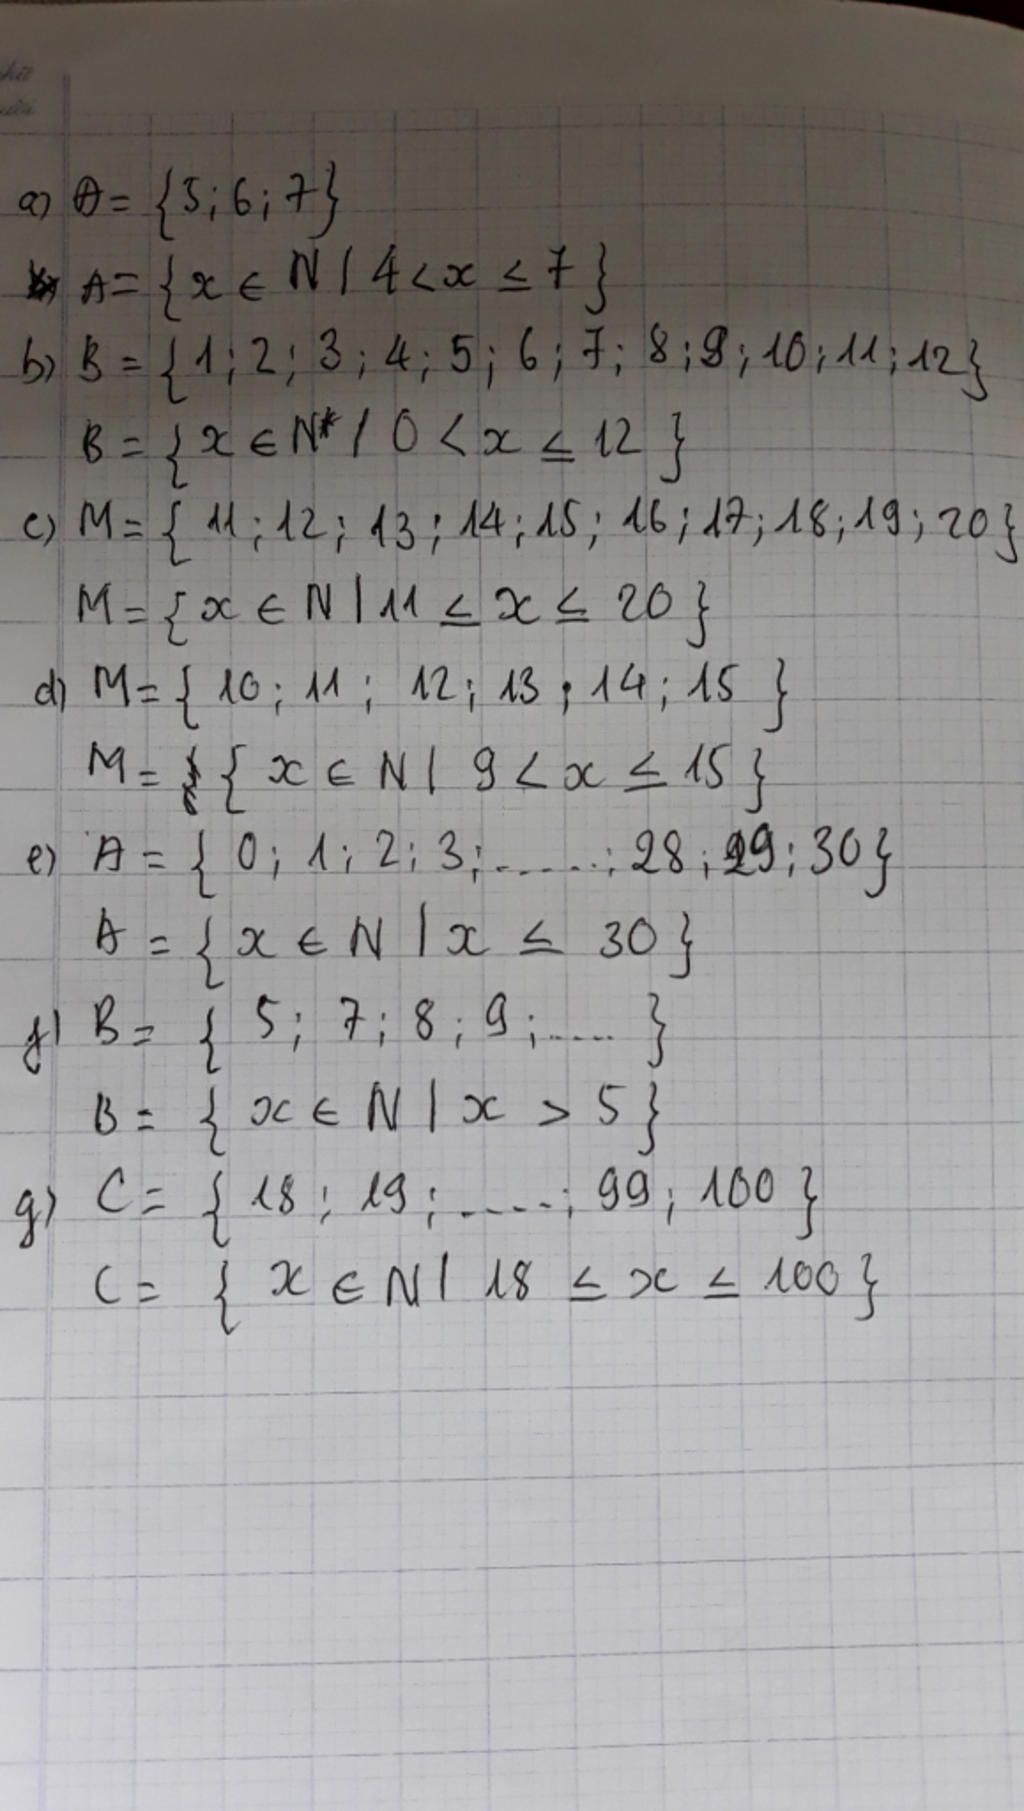 a) A = {5; 6; 7}
A = {x ∈ N / 4 < x ≤ 7}
b) B = {1; 2; 3; 4; 5; 6; 7; 8; 9; 10; 11; 12}
B = {x ∈ N* / 0 < x ≤ 12}
c) M = {11; 12; 13; 14; 15; 16; 17; 18; 19; 20}
M = {x ∈ N | 11 ≤ x ≤ 20}
d) M = {10; 11; 12; 13; 14; 15}
M = {x ∈ N | 9 < x ≤ 15}
e) A = {0; 1; 2; 3; ......; 28; 29; 30}
A = {x ∈ N | x ≤ 30}
f) B = {5; 7; 8; 9; ..... }
B = {x ∈ N | x > 5}
g) C = {18; 19; .....; 99; 100}
C = {x ∈ N | 18 ≤ x ≤ 100}